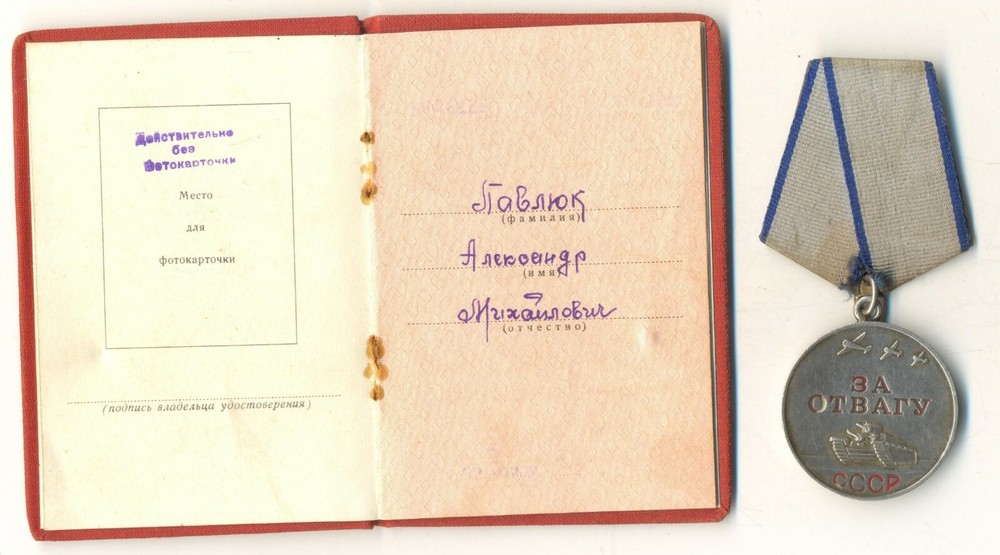 Действительно
без
Фотокарточки
Место
для
фотокарточки
(подпись владельца удостоверения)
Павлюк
(фамилия)
Александр
(имя)
Михайлович
(отчество)
ЗА
ОТВАГУ
СССР